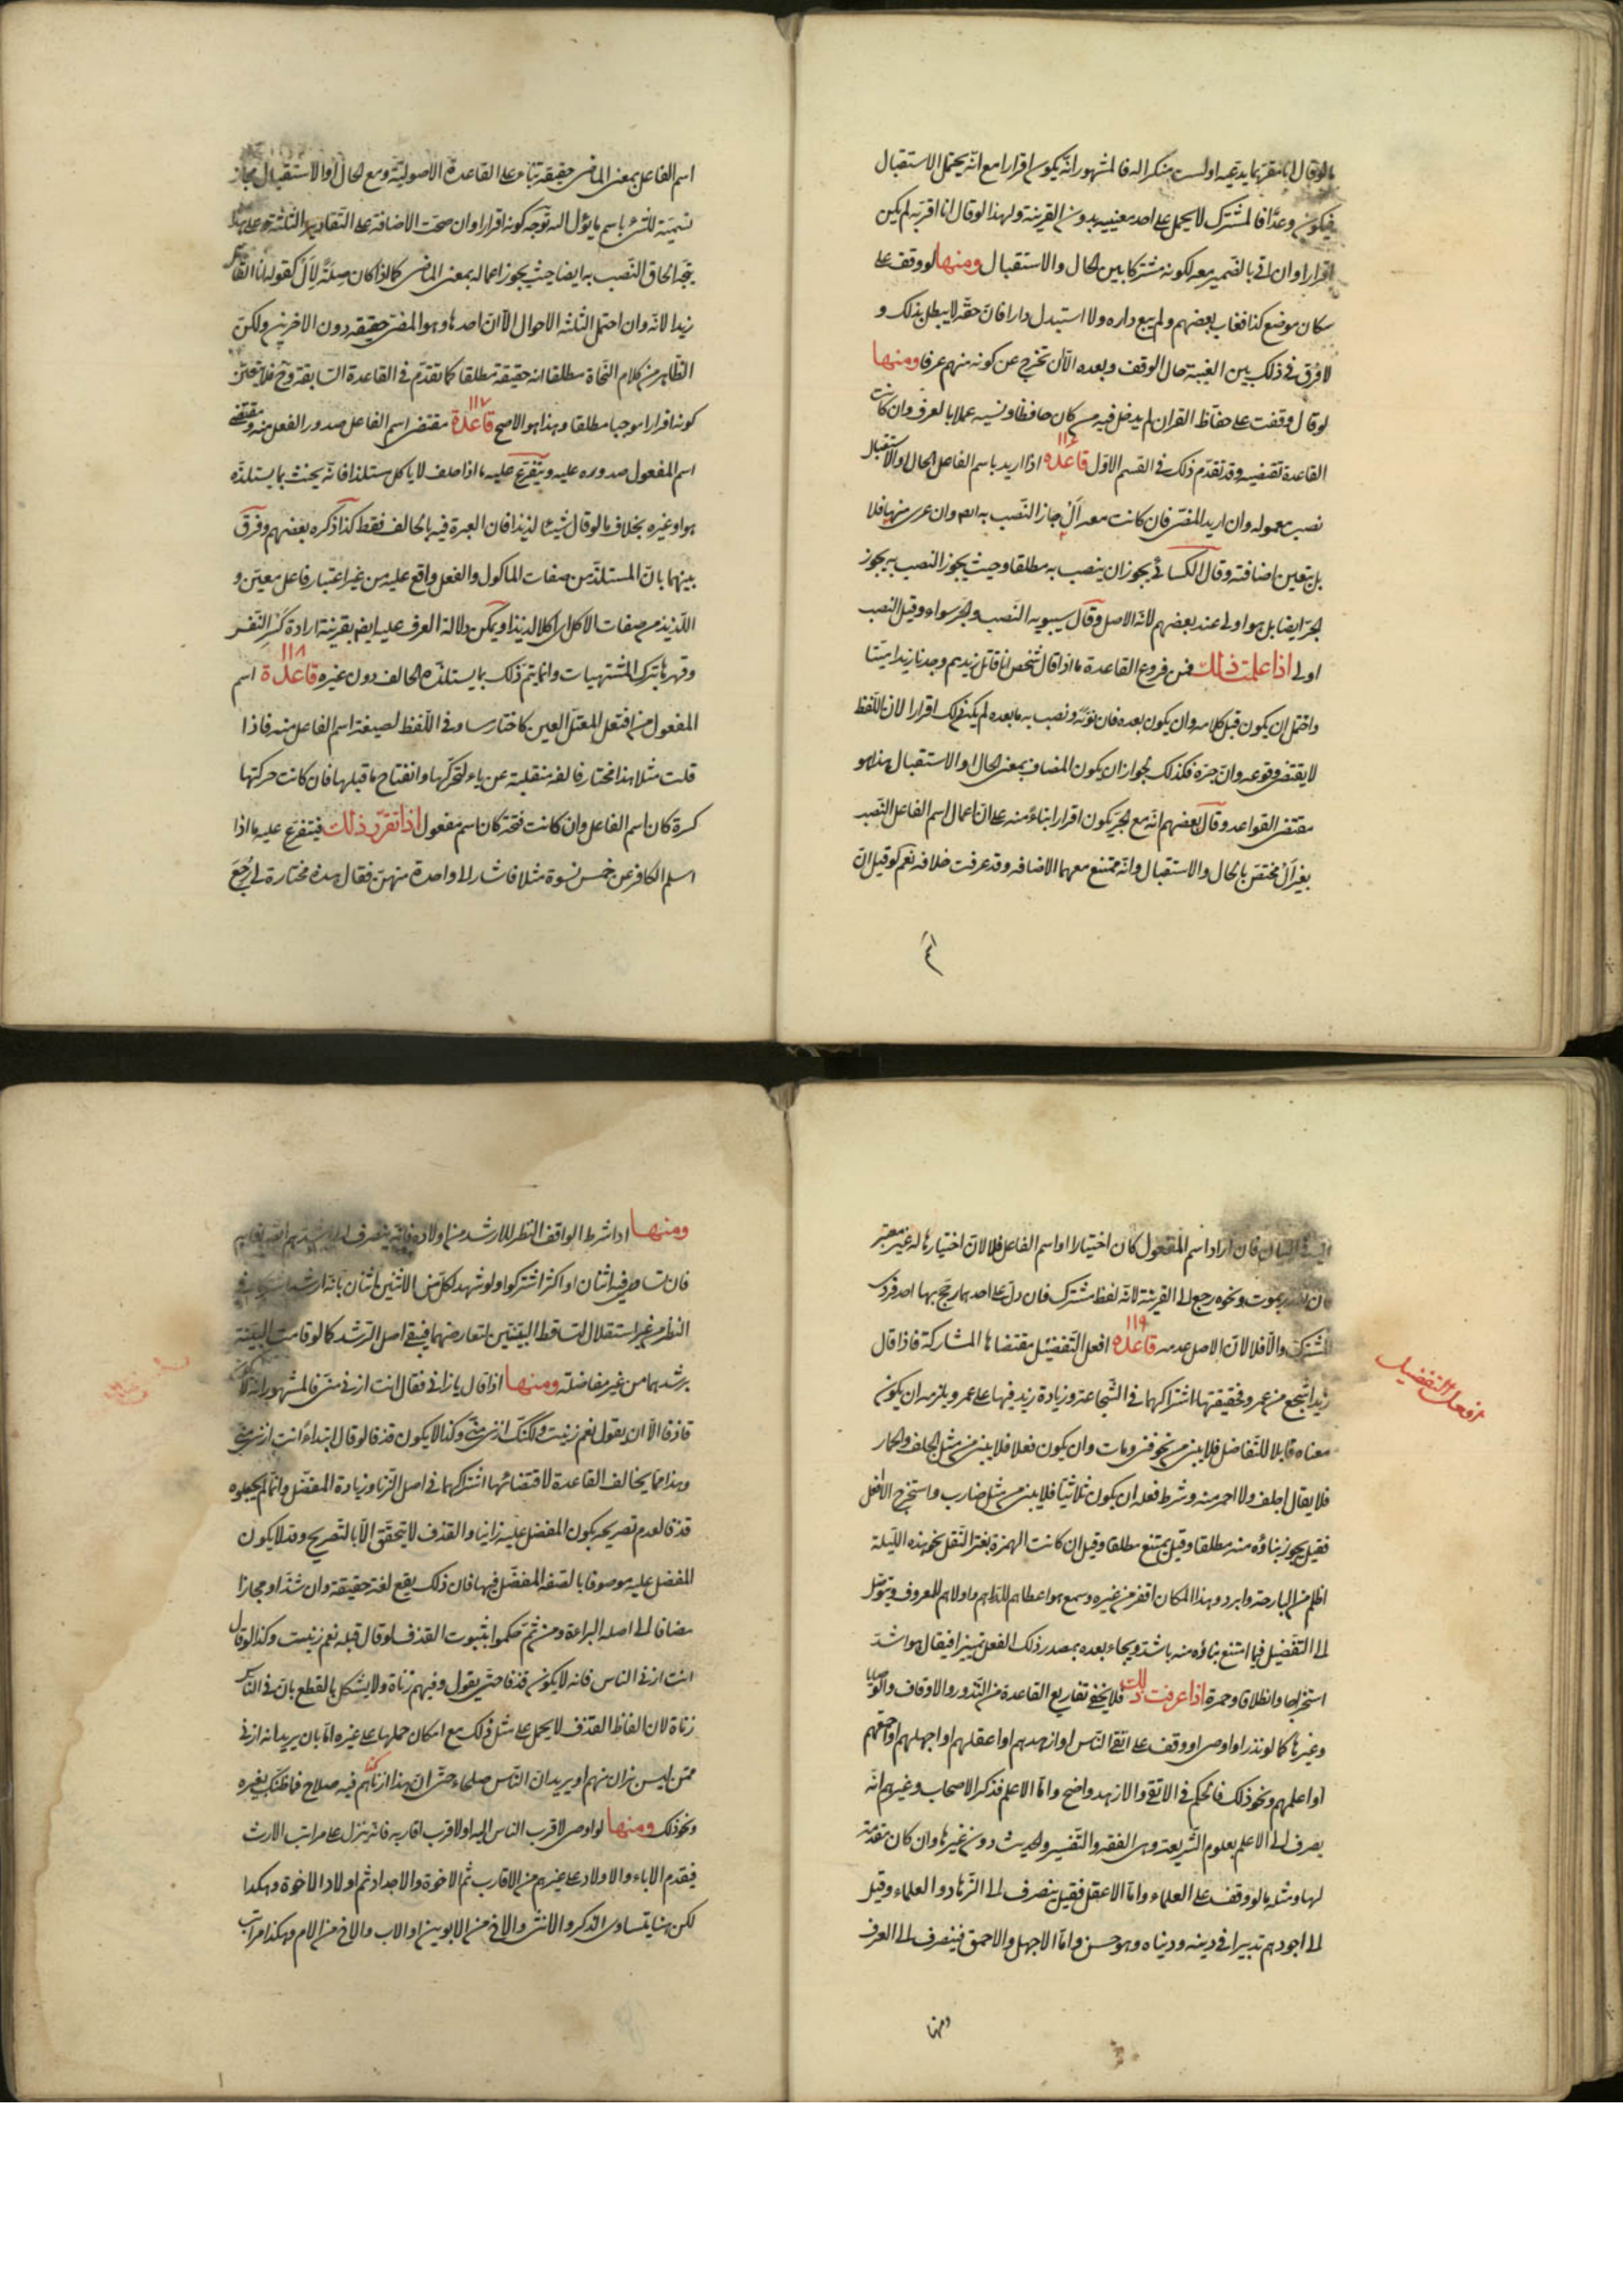 ما لو قال انا مقر بما يدعيه اولست منكرا له فالمشهور انه يكون اقرارا مع انه يحتمل الاستقبال
فيكون وعدا فالمشترك لا يحمل على احد معنييه بدون القرينة ولهذا لو قال انا اقر به لم يكن
اقرارا وان اتى بالضمير معه لكونه مشتركا بين الحال والاستقبال ومنها لو وقف على
سكان موضع كذا فغاب بعضهم ولم يبع داره ولا استبدل دارا فان حقه لا يبطل بذلك و
لا فرق في ذلك بين الغيبة حال الوقف وبعده الا ان تخرج عن كونه منهم عرفا ومنها
لو قال وقفت على حفاظ القران لم يدخل فيه من كان حافظا ونسيه عملا بالعرف وان كانت
القاعدة تقتضيه وقد تقدم ذلك في القسم الاول قاعدة ١١٦ اذا اريد باسم الفاعل الحال والاستقبال
نصب معموله وان اريد المضى فان كانت معه ال جاز النصب به ايضا وان عرى منها فلا
بل يتعين اضافته وقال الكسائي يجوز ان ينصب به مطلقا وحيث يجوز النصب به يجوز
الجر ايضا بل هو اولى عند بعضهم لانه الاصل وقال سيبويه النصب والجر سواء وقيل النصب
اولى اذا علمت ذلك فمن فروع القاعدة ما اذا قال شخص انا قاتل زيد ثم وجدنا زيدا ميتا
واحتمل ان يكون قبل كلامه وان يكون بعده فان نونه ونصب به ما بعده لم يكن ذلك اقرارا لان اللفظ
لا يقتضى وقوعه وان جره فكذلك لجواز ان يكون المضاف بمعنى الحال او الاستقبال هذا هو
مقتضى القواعد وقال بعضهم انه مع الجر يكون اقرارا بناء منه على ان اعمال اسم الفاعل النصب
بغير ال مختص بالحال والاستقبال وانه يمتنع معهما الاضافه وقد عرفت خلافه نعم لو قيل ان
اسم الفاعل بمعنى الماضى حقيقه بناء على القاعدة الاصولية ومع الحال او الاستقبال مجاز
تسمية للشئ باسم ما يؤل اليه توجه كونه اقرارا وان صحت الاضافة على التقادير الثلثة وعلى هذا
يتجه الحاق النصب به ايضا حيث يجوز اعماله بمعنى الماضى كما اذا كان صلة لال كقوله انا القاتل
زيدا لانه وان احتمل الثلثه الاحوال الا ان احدها وهو المضى حقيقه دون الاخرين ولكن
الظاهر من كلام النحاة مطلقا انه حقيقة مطلقا كما تقدم في القاعدة السابقة وح فلا يتعين
كونه اقرارا موجبا مطلقا وهذا هو الاصح قاعدة ١١٧ مقتضى اسم الفاعل صدور الفعل منه ومقتضى
اسم المفعول صدوره عليه ويتفرع عليه ما اذا حلف لا ياكل مستلذا فانه يحنث بما يستلذه
هو او غيره بخلاف ما لو قال شيئا لذيذا فان العبرة فيه بالحالف فقط كذا ذكره بعضهم وفرق
بينهما بان المستلذ من صفات الماكول والفعل واقع عليه من غير اعتبار فاعل معين و
اللذيذ من صفات الاكل اى اكلا لذيذا ويمكن دلالة العرف عليه ايضا بقرينة ارادة كسر النفس
وقهرها بترك المشتهيات وانما يتم ذلك بما يستلذه الحالف دون غيره قاعدة ١١٨ اسم
المفعول من افتعل المعتل العين كاختار مساو في اللفظ لصيغة اسم الفاعل منه فاذا
قلت مثلا هذا مختار فالفه منقلبة عن ياء لتحركها وانفتاح ما قبلها فان كانت حركتها
كسرة كان اسم الفاعل وان كانت فتحة كان اسم مفعول اذا تقرر ذلك فيتفرع عليه ما اذا
اسلم الكافر عن خمس نسوة مثلا فاشار الى واحدة منهن فقال هذه مختارة لى رجع
فان اراد اسم المفعول كان اختيارا او اسم الفاعل فلا لان اختيارها له غير معتبر
بموت ونحوه رجع الى القرينة لانه لفظ مشترك فان دل على احدهما رجح بها احد فردى
المشترك والا فلا لان الاصل عدمه قاعدة ١١٩ افعل التفضيل مقتضاها المشاركة فاذا قال
زيد اشجع من عمرو فحقيقتها اشتراكهما في الشجاعة وزيادة زيد فيها على عمرو ويلزمه ان يكون
معناه قابلا للتفاضل فلا يبنى من نحو فنى ومات وان يكون فعلا فلا يبنى من مثل الجلف والحمار
فلا يقال اجلف ولا احمر منه وشرط فعله ان يكون ثلاثيا فلا يبنى من مثل ضارب واستخرج الا افعل
فقيل يجوز بناؤه منه مطلقا وقيل يمتنع مطلقا وقيل ان كانت الهمزة لغير النقل نحو هذه الليلة
اظلم من البارحة وابرد وهذا المكان اقفر من غيره وسمع هو اعطاهم للدراهم واولاهم للمعروف ويتوصل
الى التفضيل فيما امتنع بناؤه منه باشد ويجاء بعده بمصدر ذلك الفعل تمييزا فيقال هو اشد
استخراجا وانطلاقا وحمرة اذا عرفت ذلك فلا يخفى تفاريع القاعدة من النذور والاوقاف والوصايا
وغيرها كما لو نذر او اوصى او وقف على اتقى الناس او ازهدهم او اعقلهم او اجهلهم او احمقهم
او اعلمهم ونحو ذلك فالحكم في الاتقى والازهد واضح واما الاعلم فذكر الاصحاب وغيرهم انه
يصرف الى الاعلم بعلوم الشريعة وهى الفقه والتفسير والحديث دون غيرها وان كان مقدمة
لها ومثله ما لو وقف على العلماء واما الاعقل فقيل ينصرف الى الزهاد والعلماء وقيل
الى اجودهم تدبيرا في دينه ودنياه وهو حسن واما الاجهل والاحمق فينصرف الى العرف
ومنها
افعل التفضيل
ومنها اذا شرط الواقف النظر للارشد من اولاده فانه ينصرف الى
فان تساوى فيه اثنان او اكثر اشتركوا ولو شهد لكل من الاثنين اثنان بانه ارشد اشتركا في
النظر من غير استقلال لتساقط البينتين لتعارضهما فيبقى اصل الرشد كما لو قامت البينة
برشدهما من غير مفاضلة ومنها اذا قال يا زانى فقال انت ازنى منى فالمشهور انه لا
قاذفا الا ان يقول نعم زنيت ولكنك ازنى منى وكذا لا يكون قذفا لو قال ابتداء انت ازنى منى
وهذا مما يخالف القاعدة لاقتضائها اشتراكهما في اصل الزنا وزيادة المفضل وانما لم يجعلوه
قذفا لعدم تصريحه بكون المفضل عليه زانيا والقذف لا يتحقق الا بالتصريح وقد لا يكون
المفضل عليه موصوفا بالصفه المفضل فيها فان ذلك يقع لغة حقيقة وان شذ او مجازا
مضافا الى اصله البراءة ومن ثم حكموا بثبوت القذف لو قال قبله نعم زنيت وكذا لو قال
انت ازنى الناس فانه لا يكون قذفا حتى يقول وفيهم زناة ولا يشكل بالقطع بان في الناس
زناة لان الفاظ القذف لا يحمل على مثل ذلك مع امكان حملها على غيره اما بان يريد انه ازنى
ممن ليس بزان منهم او يريد ان الناس صلحاء حتى ان هذا ازناهم فيه صلاح فما ظنك بغيره
ونحو ذلك ومنها لو اوصى لاقرب الناس اليه او لاقرب اقاربه فانه ينزل على مراتب الارث
فيقدم الاباء والاولاد على غيرهم من الاقارب ثم الاخوة والاجداد ثم اولاد الاخوة وهكذا
لكن هنا يتساوى الذكر والانثى والاخ من الابوين او الاب والاخ من الام وهكذا مراتب